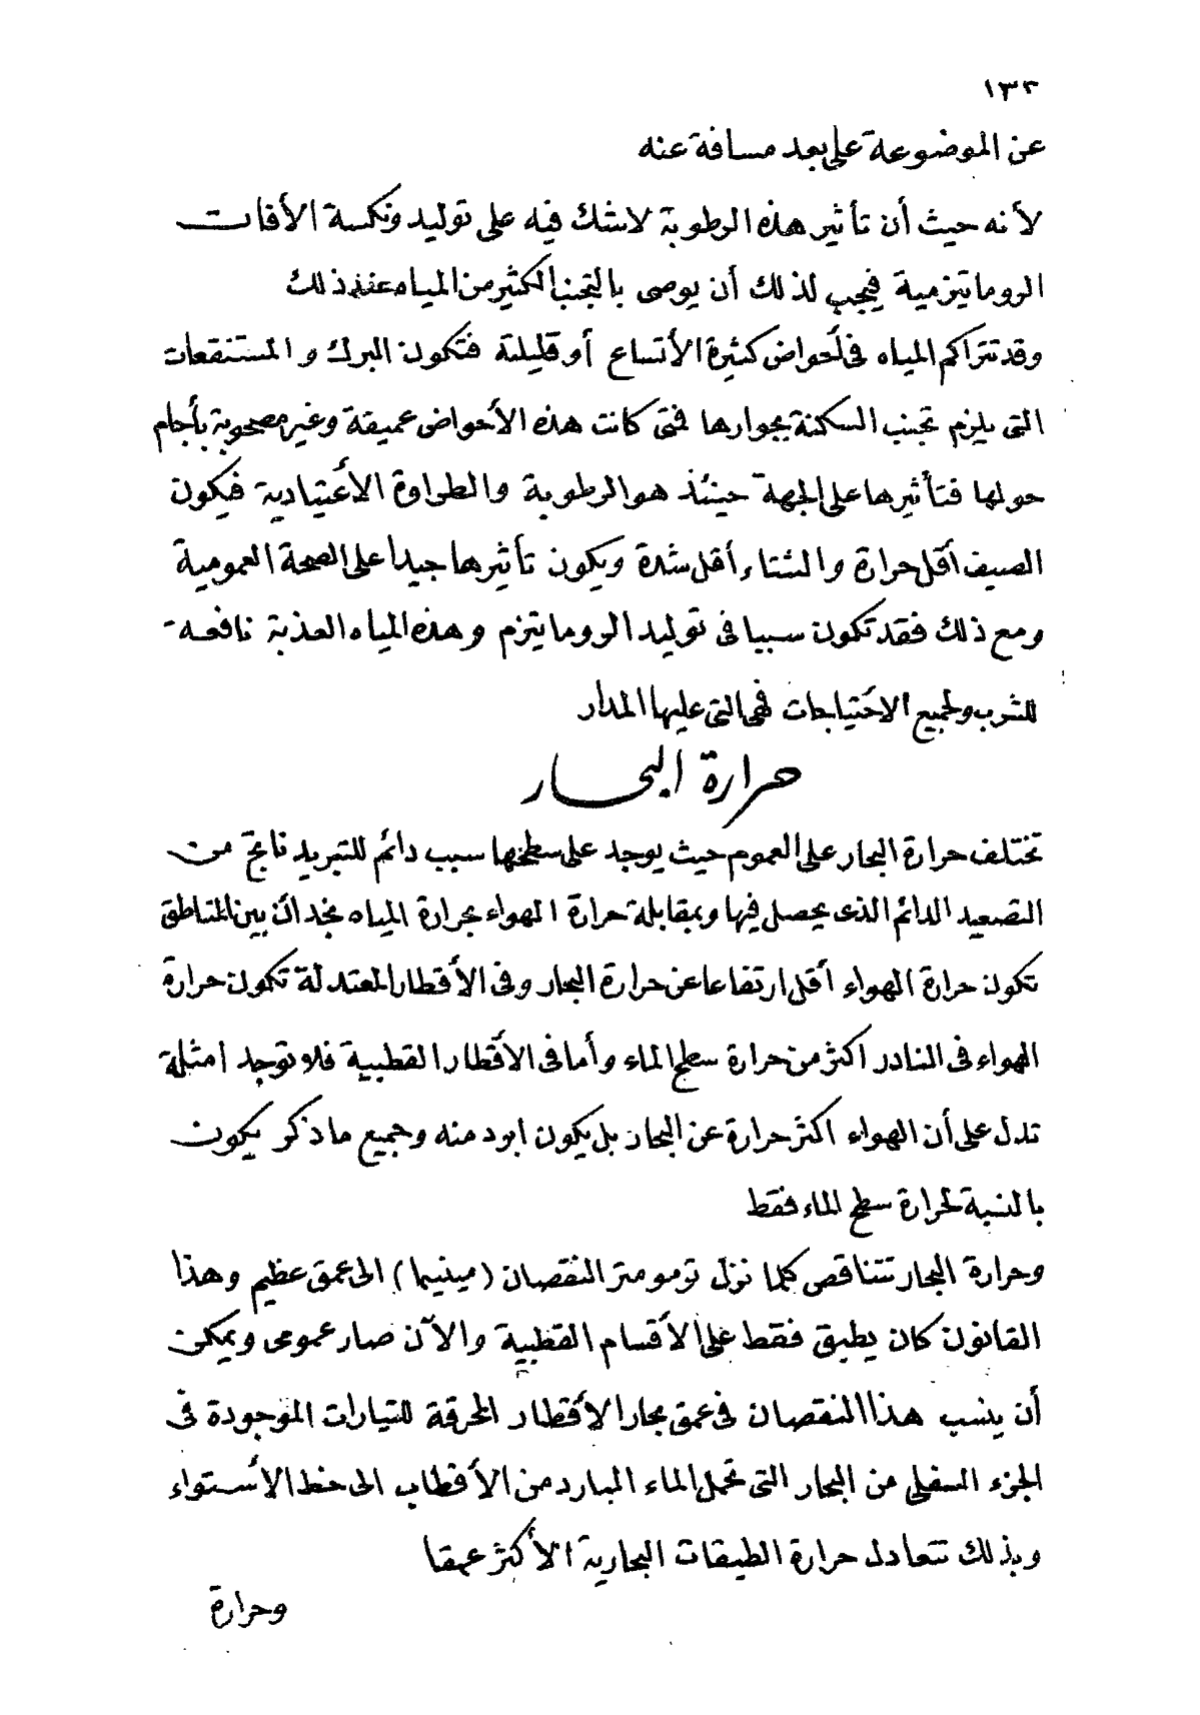 ١٣٢
عن الموضوعة على بعد مسافة عنه
لأنه حيث أن تأثير هذه الرطوبة لاشك فيه على توليد ونكسة الأفات
الروماتيزمية فيجب لذلك أن يوصى بالتجنب الكثير من المياه عند ذلك
وقد تتراكم المياه فى أحواض كثيرة الأتساع أو قليلته فتكون البرك والمستنقعات
التى يلزم تجنب السكنة بجوارها فمتى كانت هذه الأحواض عميقة وغير مصحوبة بأجام
حولها فتأثيرها على الجهة حينئذ هو الرطوبة والطراوة الأعتيادية فيكون
الصيف أقل حرارة والشتاء أقل شدة ويكون تأثيرها جيدا على الصحة العمومية
ومع ذلك فقد تكون سببا فى توليد الروماتيزم وهذه المياه العذبة نافعة
للشرب ولجميع الاحتياجات فهى التى عليها المدار
حرارة البحار
تختلف حرارة البحار على العموم حيث يوجد على سطحها سبب دائم للتبريد ناتج من
التصعيد الدائم الذى يحصل فيها وبمقابلة حرارة الهواء بحرارة المياه نجد أن بين المناطق
تكون حرارة الهواء أقل ارتفاعا عن حرارة البحار وفى الأقطار المعتدلة تكون حرارة
الهواء فى النادر اكثر من حرارة سطح الماء وأما فى الأقطار القطبية فلا توجد امثلة
تدل على أن الهواء اكثر حرارة عن البحار بل يكون ابرد منه وجميع ما ذكر يكون
بالنسبة لحرارة سطح الماء فقط
وحرارة البحار تتناقص كلما نزل ترمومتر النقصان (مينيما) الى عمق عظيم وهذا
القانون كان يطبق فقط على الأقسام القطبية والآن صار عمومى ويمكن
أن ينسب هذا النقصان فى عمق بحار الأقطار المحرقة للتيارات الموجودة فى
الجزء السفلى من البحار التى تحمل الماء البارد من الأقطاب الى خط الأستواء
وبذلك تتعادل حرارة الطبقات البحارية الأكثر عمقا
وحرارة